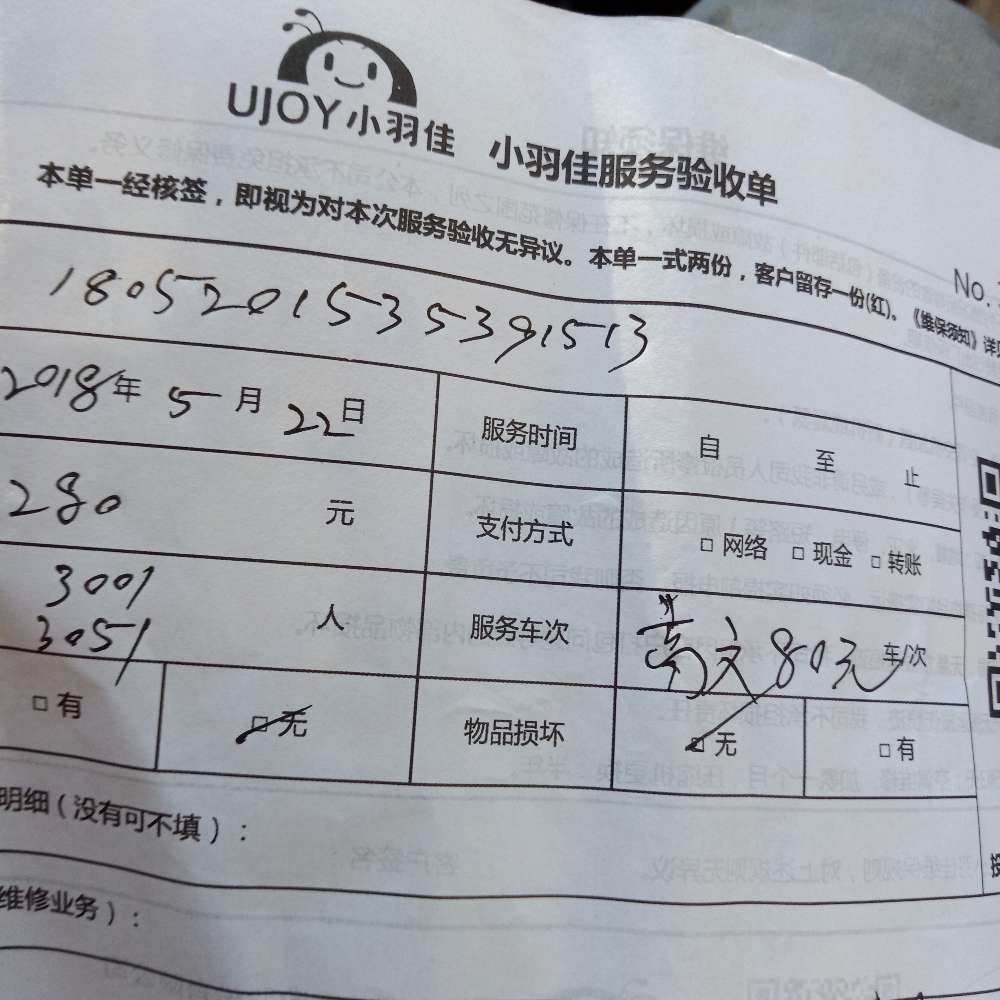 UJOY小羽佳 小羽佳服务验收单
本单一经核签，即视为对本次服务验收无异议。本单一式两份，客户留存一份(红)。《维保须知》详
No.
1805201535391513
2018年 5月 22日 服务时间 自 至 止
280 元 支付方式 □ 网络 □ 现金 □ 转账
3001
3051 人 服务车次 80元 车/次
□ 有 □ 无 物品损坏 □ 无 □ 有
明细（没有可不填）：
维修业务）：